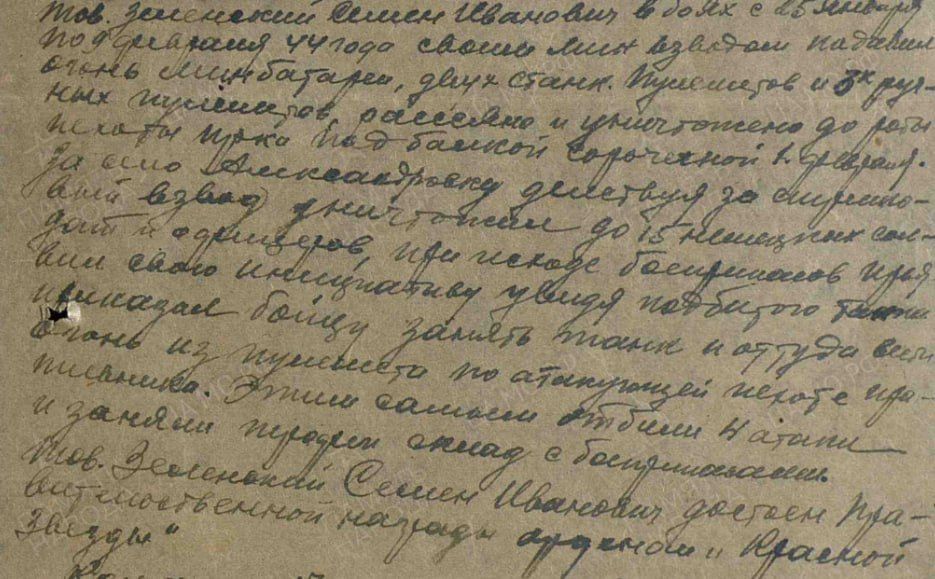 тов. Зеленский Семен Иванович в боях с 25 января
по 9 февраля 44 года своим мин взводом подавил
огонь минбатареи, двух станк. пулеметов и 5х руч-
ных пулеметов, рассеяно и уничтожено до роты
пехоты пр-ка под балкой Сорочечной 1 февраля.
За село Александровку действуя за стрелко-
вый взвод уничтожили до 15 немецких сол-
дат и офицеров, при исходе боеприпасов проя
вил свою инициативу увидя подбитого танка
приказал бойцу занять танк и оттуда вести
огонь из пулемета по атакующей пехоте про-
тивника. Этим самым отбили 4 атаки
и заняли трофеи склад с боеприпасами.
Тов. Зеленский Семен Иванович достоен пра-
вительственной награды орденом "Красной
Звезды"